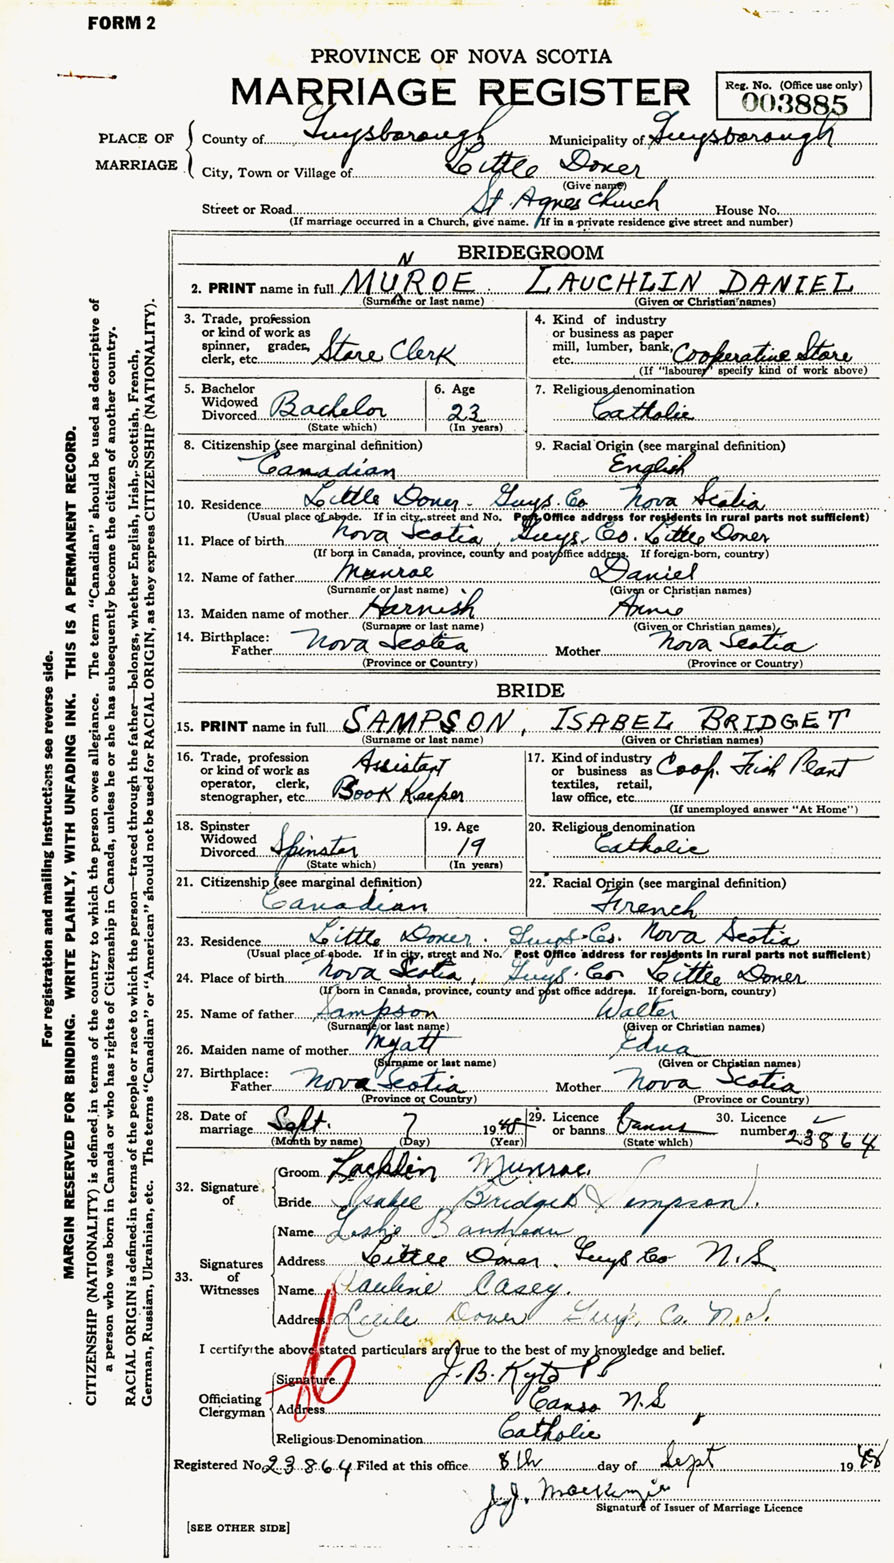 FORM 2
PROVINCE OF NOVA SCOTIA
MARRIAGE REGISTER
Reg. No. (Office use only)
003885
PLACE OF MARRIAGE
County of Guysborough Municipality of Guysborough
City, Town or Village of Little Dover
(Give name)
Street or Road St. Agnes Church House No.
(If marriage occurred in a Church, give name. If in a private residence give street and number)
BRIDEGROOM
2. PRINT name in full MUNROE LAUCHLIN DANIEL
(Surname or last name) (Given or Christian names)
3. Trade, profession or kind of work as spinner, grader, clerk, etc. Store Clerk
4. Kind of industry or business as paper mill, lumber, bank, etc. Cooperative Store
(If "labourer" specify kind of work above)
5. Bachelor Widowed Divorced Bachelor
(State which)
6. Age 23
(In years)
7. Religious denomination Catholic
8. Citizenship (see marginal definition) Canadian
9. Racial Origin (see marginal definition) English
10. Residence Little Dover - Guys. Co Nova Scotia
(Usual place of abode. If in city, street and No. Post Office address for residents in rural parts not sufficient)
11. Place of birth Nova Scotia, Guys. Co. Little Dover
(If born in Canada, province, county and post office address. If foreign-born, country)
12. Name of father Munroe Daniel
(Surname or last name) (Given or Christian names)
13. Maiden name of mother Harnish Annie
(Surname or last name) (Given or Christian names)
14. Birthplace: Father Nova Scotia Mother Nova Scotia
(Province or Country) (Province or Country)
BRIDE
15. PRINT name in full SAMPSON, ISABEL BRIDGET
(Surname or last name) (Given or Christian names)
16. Trade, profession or kind of work as operator, clerk, stenographer, etc. Assistant Book Keeper
17. Kind of industry or business as textiles, retail, law office, etc. Coop. Fish Plant
(If unemployed answer "At Home")
18. Spinster Widowed Divorced Spinster
(State which)
19. Age 19
(In years)
20. Religious denomination Catholic
21. Citizenship (see marginal definition) Canadian
22. Racial Origin (see marginal definition) French
23. Residence Little Dover. Guys. Co. Nova Scotia
(Usual place of abode. If in city, street and No. Post Office address for residents in rural parts not sufficient)
24. Place of birth Nova Scotia, Guys. Co Little Dover
(If born in Canada, province, county and post office address. If foreign-born, country)
25. Name of father Sampson Walter
(Surname or last name) (Given or Christian names)
26. Maiden name of mother Myatt Edna
(Surname or last name) (Given or Christian names)
27. Birthplace: Father Nova Scotia Mother Nova Scotia
(Province or Country) (Province or Country)
28. Date of marriage Sept. 7 1948
(Month by name) (Day) (Year)
29. Licence or banns banns
(State which)
30. Licence number 23864
32. Signature of
Groom Lachlin Munroe.
Bride Isabel Bridget Sampson.
33. Signatures of Witnesses
Name Leslie
Address Little Dover. Guys Co N.S
Name Pauline Casey.
Address Little Dover Guys. Co. N.S.
I certify the above stated particulars are true to the best of my knowledge and belief.
Officiating Clergyman
Signature J. B. Kyte PP
Address Canso N.S
Religious Denomination Catholic
Registered No. 23864 Filed at this office 8th day of Sept 1948
J.J. MacKenzie
Signature of Issuer of Marriage Licence
[SEE OTHER SIDE]
For registration and mailing instructions see reverse side.
MARGIN RESERVED FOR BINDING. WRITE PLAINLY, WITH UNFADING INK. THIS IS A PERMANENT RECORD.
CITIZENSHIP (NATIONALITY) is defined in terms of the country to which the person owes allegiance. The term "Canadian" should be used as descriptive of
a person who was born in Canada or who has rights of Citizenship in Canada, unless he or she has subsequently become the citizen of another country.
RACIAL ORIGIN is defined in terms of the people or race to which the person—traced through the father—belongs, whether English, Irish, Scottish, French,
German, Russian, Ukrainian, etc. The terms "Canadian" or "American" should not be used for RACIAL ORIGIN, as they express CITIZENSHIP (NATIONALITY).